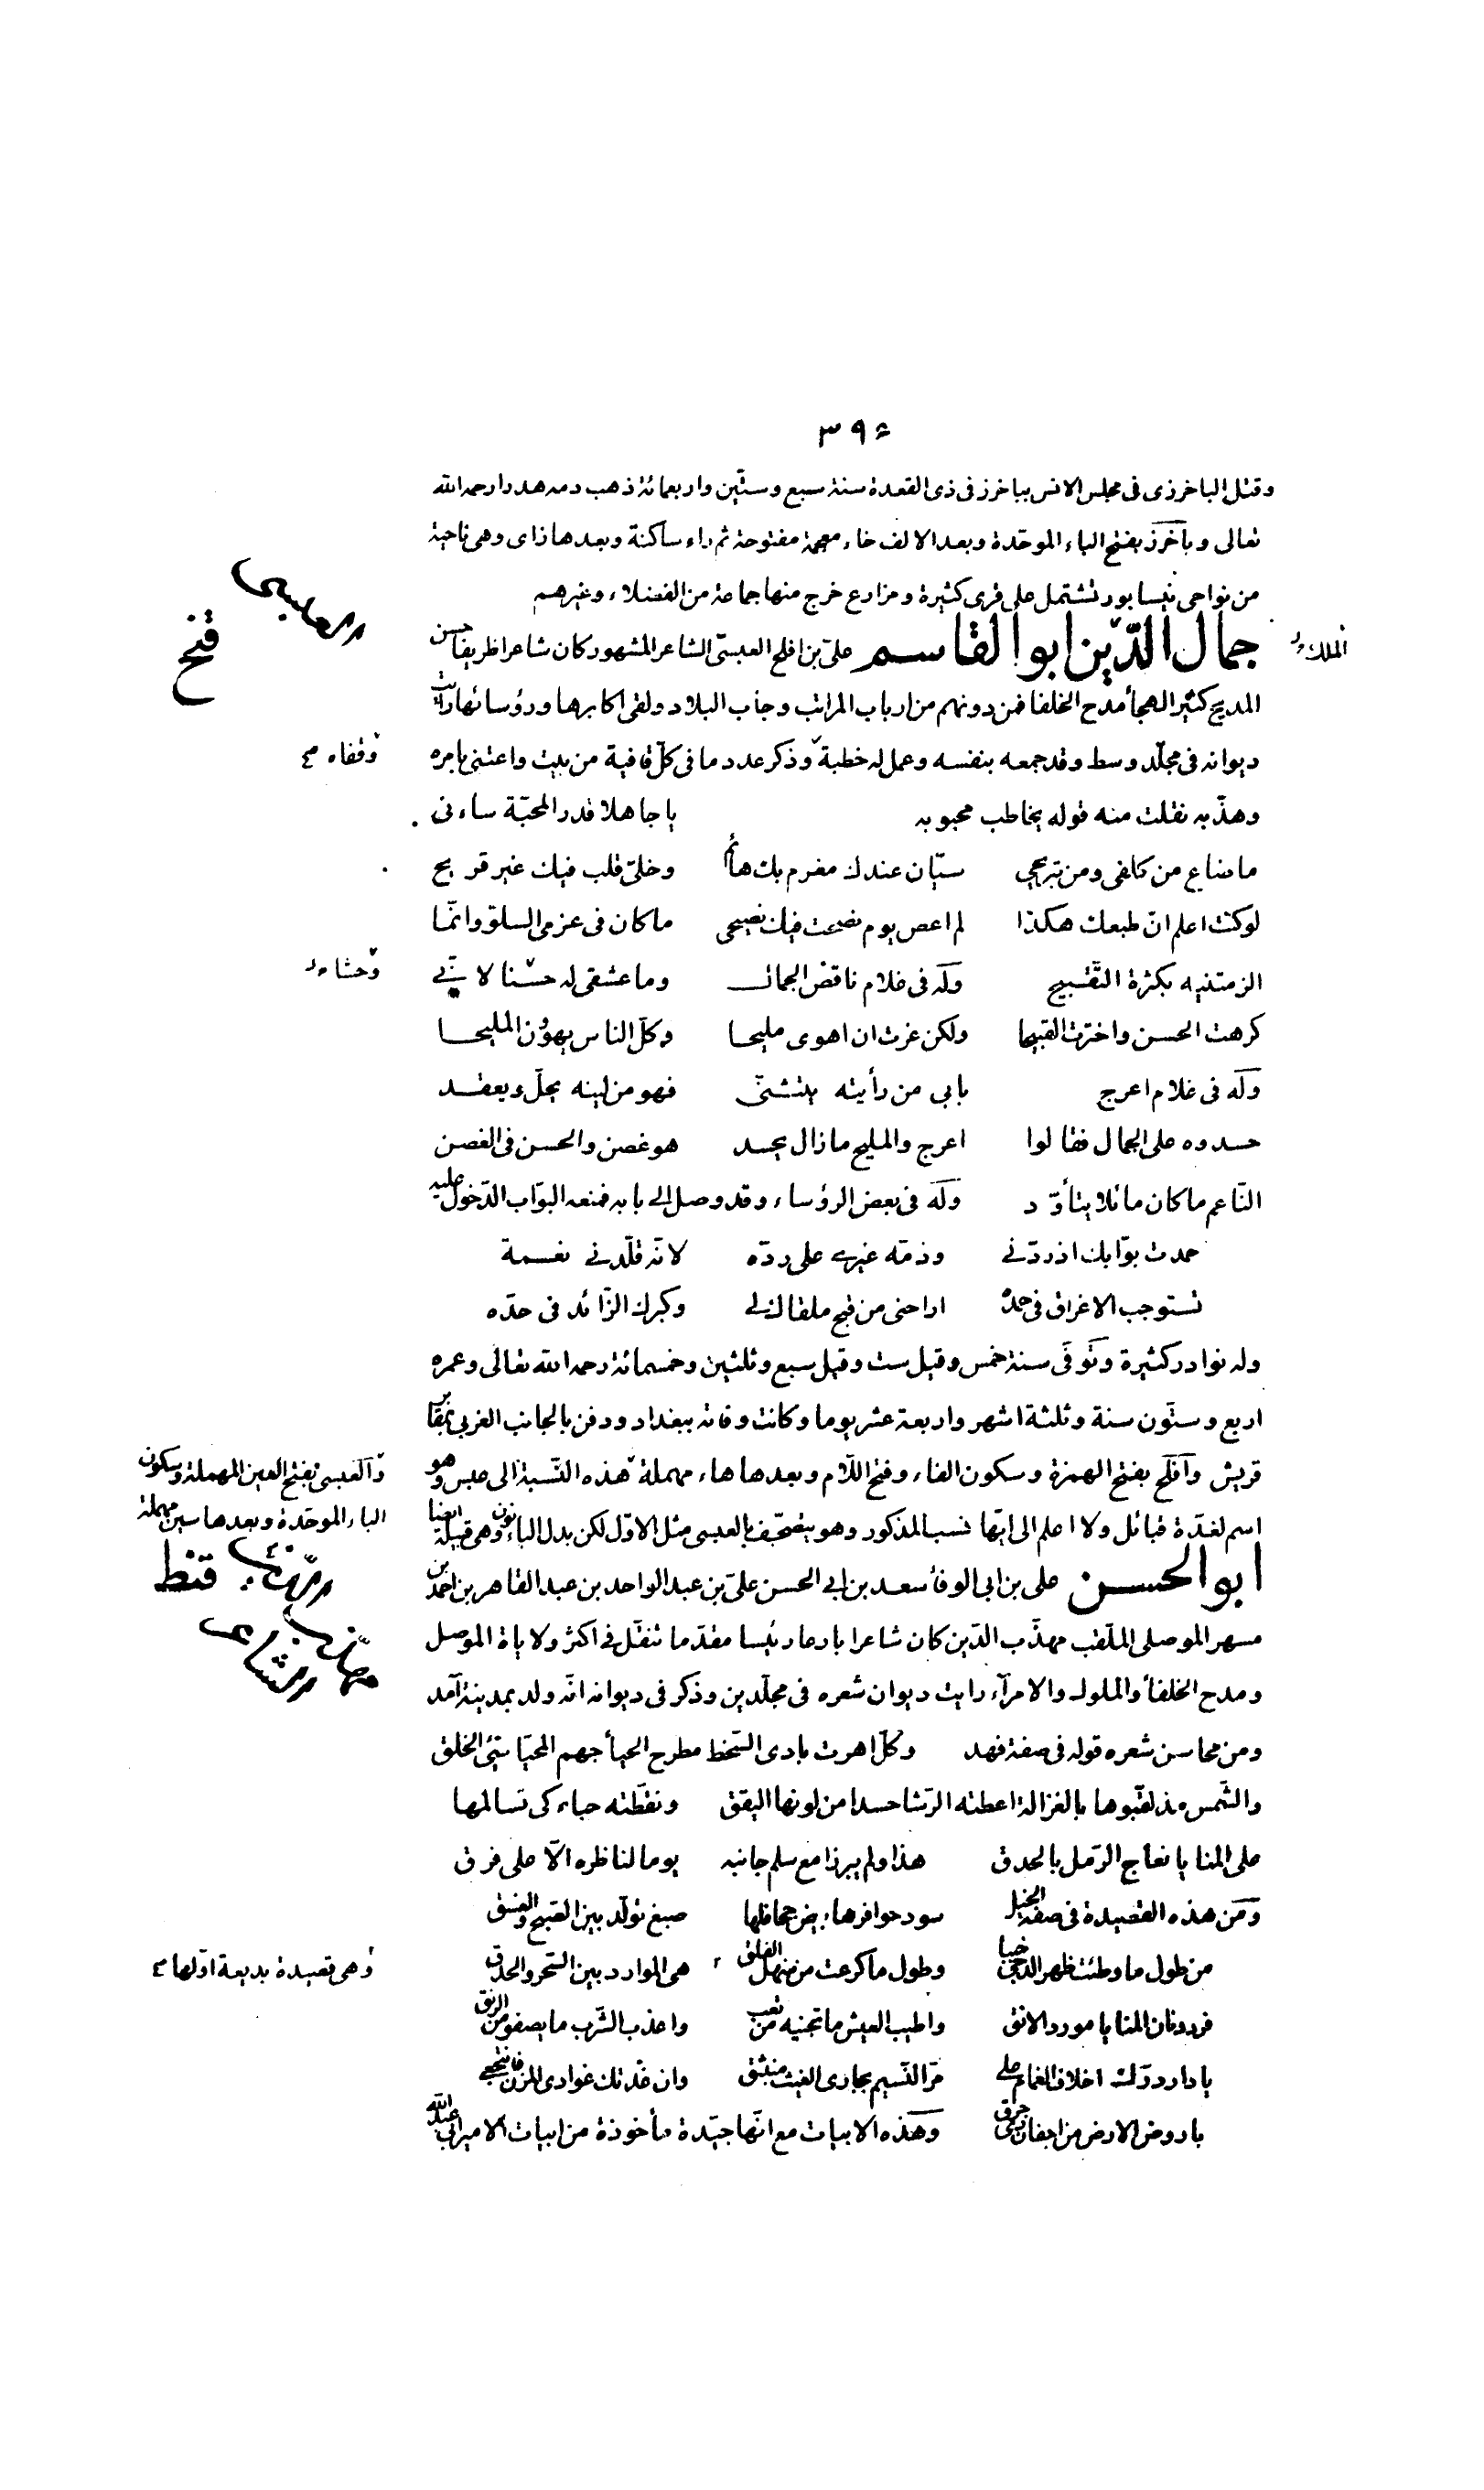 ٣٩٤
وقتل الباخرزى فى مجلس الانس بباخرز فى ذى القعدة سنة سبع وستّين واربعمائة ذهب دمه هدرا رحمه الله
تعالى وباخرز بفتح الباء الموحّدة وبعد الالف خاء معجمة مفتوحة ثم راء ساكنة وبعدها زاى وهى ناحية
من نواحى نيسابور تشتمل على قرى كثيرة ومزارع خرج منها جماعة من الفضلاء وغيرهم
جمال الدّين ابو القاسم علىّ بن افلح العبسىّ الشاعر المشهور كان شاعرا ظريفا حسن
الملك
المديح كثير الهجاء مدح الخلفا فمن دونهم من ارباب المراتب وجاب البلاد ولقى اكابرها ورؤسائها رأيت
ديوانه فى مجلّد وسط وقد جمعه بنفسه وعمل له خطبة وذكر عدد ما فى كلّ قافية من بيت واعتنى بامره
وقفاه
وهذّبه نقلت منه قوله يخاطب محبوبه يا جاهلا قدر المحبّة ساءنى
ما ضاع من كلفى ومن تبريحى سيّان عندك مغرم بك هائم وخلىّ قلب فيك غير قريح
لو كنت اعلم انّ طبعك هكذا لم اعص يوم نصحت فيك نصيحى ما كان فى عزمى السلوّ وانّما
الزمتنيه بكثرة التّقبيح وله فى غلام ناقص الجمال وما عشقى له حسنا لانّى
وحشا
كرهت الحسن واخترت القبيحا ولكن غرت ان اهوى مليحا وكلّ الناس يهوون المليحا
وله فى غلام اعرج بابى من رأيته يتثنّى فهو من لينه يحلّ ويعقد
حسدوه على الجمال فقالوا اعرج والمليح ما زال يحسد هو غصن والحسن فى الغصن
النّاعم ما كان مائلا يتأوّد وله فى بعض الرؤساء وقد وصل الى بابه فمنعه البوّاب الدّخول عليه
حمدت بوّابك اذ ردّنى وذمّه غيرى على ردّه لانّه قلّدنى نعمة
تستوجب الاغراق فى حمده اراحنى من قبح ملقاك لى وكبرك الزّائد فى حدّه
وله نوادر كثيرة وتوفّى سنة خمس وقيل ست وقيل سبع وثلثين وخمسمائة رحمه الله تعالى وعمره
اربع وستّون سنة وثلثة اشهر واربعة عشر يوما وكانت وفاته ببغداد ودفن بالجانب الغربى بمقابر
قريش وافلح بفتح الهمزة وسكون الفاء وفتح اللّام وبعدها حاء مهملة هذه النّسبة الى عبس وهو
والعبسى بفتح العين المهملة وسكون
الباء الموحّدة وبعدها سين مهملة
اسم لعدّة قبائل ولا اعلم الى ايّها نسب المذكور وهو يتصحّف بالعنسى مثل الاوّل لكن بدل الباء نون وهى قبيلة ايضا
ابو الحسن على بن ابى الوفاء سعد بن ابى الحسن علىّ بن عبد الواحد بن عبد القاهر بن احمد بن
مسهر الموصلى الملقّب مهذّب الدّين كان شاعرا بارعا رئيسا مقدّما تنقّل فى اكثر ولاياة الموصل
ومدح الخلفاء والملوك والامرآء رايت ديوان شعره فى مجلّدين وذكر فى ديوانه انّه ولد بمدينة آمد
ومن محاسن شعره قوله فى صفة فهد وكلّ اهرت بادى السّخط مطرح الحيأ جهم المحيّا سيّئ الخلق
والشّمس مذ لقّبوها بالغزالة اعطته الرّشا حسدا من لونها اليقق ونقّطته حباء كى تسالمها
على المنايا نعاج الرّمل بالحدق هذا ولم يبرزا مع سلم جانبه يوما لناظره الّا على فرق
ومن هذه القصيدة فى صفة الخيل سود حوافرها بيض جحافلها صبغ تولّد بين الصّبح والغسق
من طول ما وطئت ظهر الدجى خببا وطول ما كرعت من منهل الفلق هى الموارد بين السّحر والحدق
وهى قصيدة بديعة اوّلها
فرد ونان المنايا مورد الانق واطيب العيش ما تجنيه من تعب واعذب الشّرب ما يصفو من الرنق
يا دار درّت اخلاف الغمام على مرّ النّسيم بجارى الغيث منبثق وان عدتك غوادى المزن فانتجعى
يا روض الارض من اجفان ذى حرق وهذه الابيات مع انّها جيّدة مأخوذة من ابيات الامير ابى عبد الله